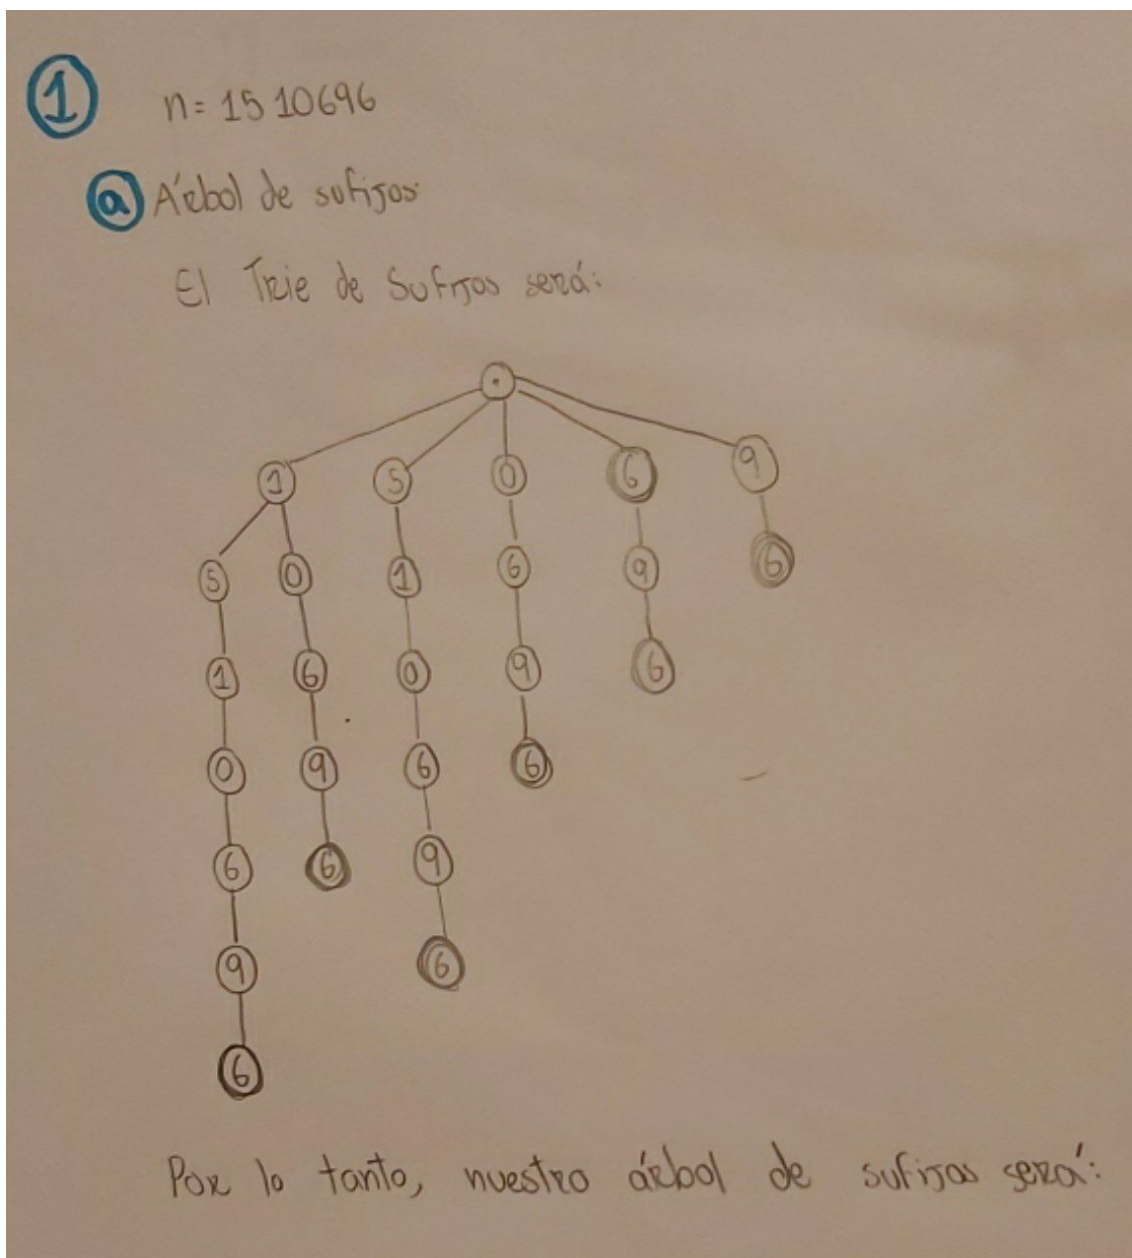 1 n= 1510696
a Árbol de sufijos:
El Trie de Sufijos será:
.
1 5 0 6 9
5 0 1 6 9 6
1 6 0 9 6
0 9 6 6
6 6 9
9 6
6
Por lo tanto, nuestro árbol de sufijos será: